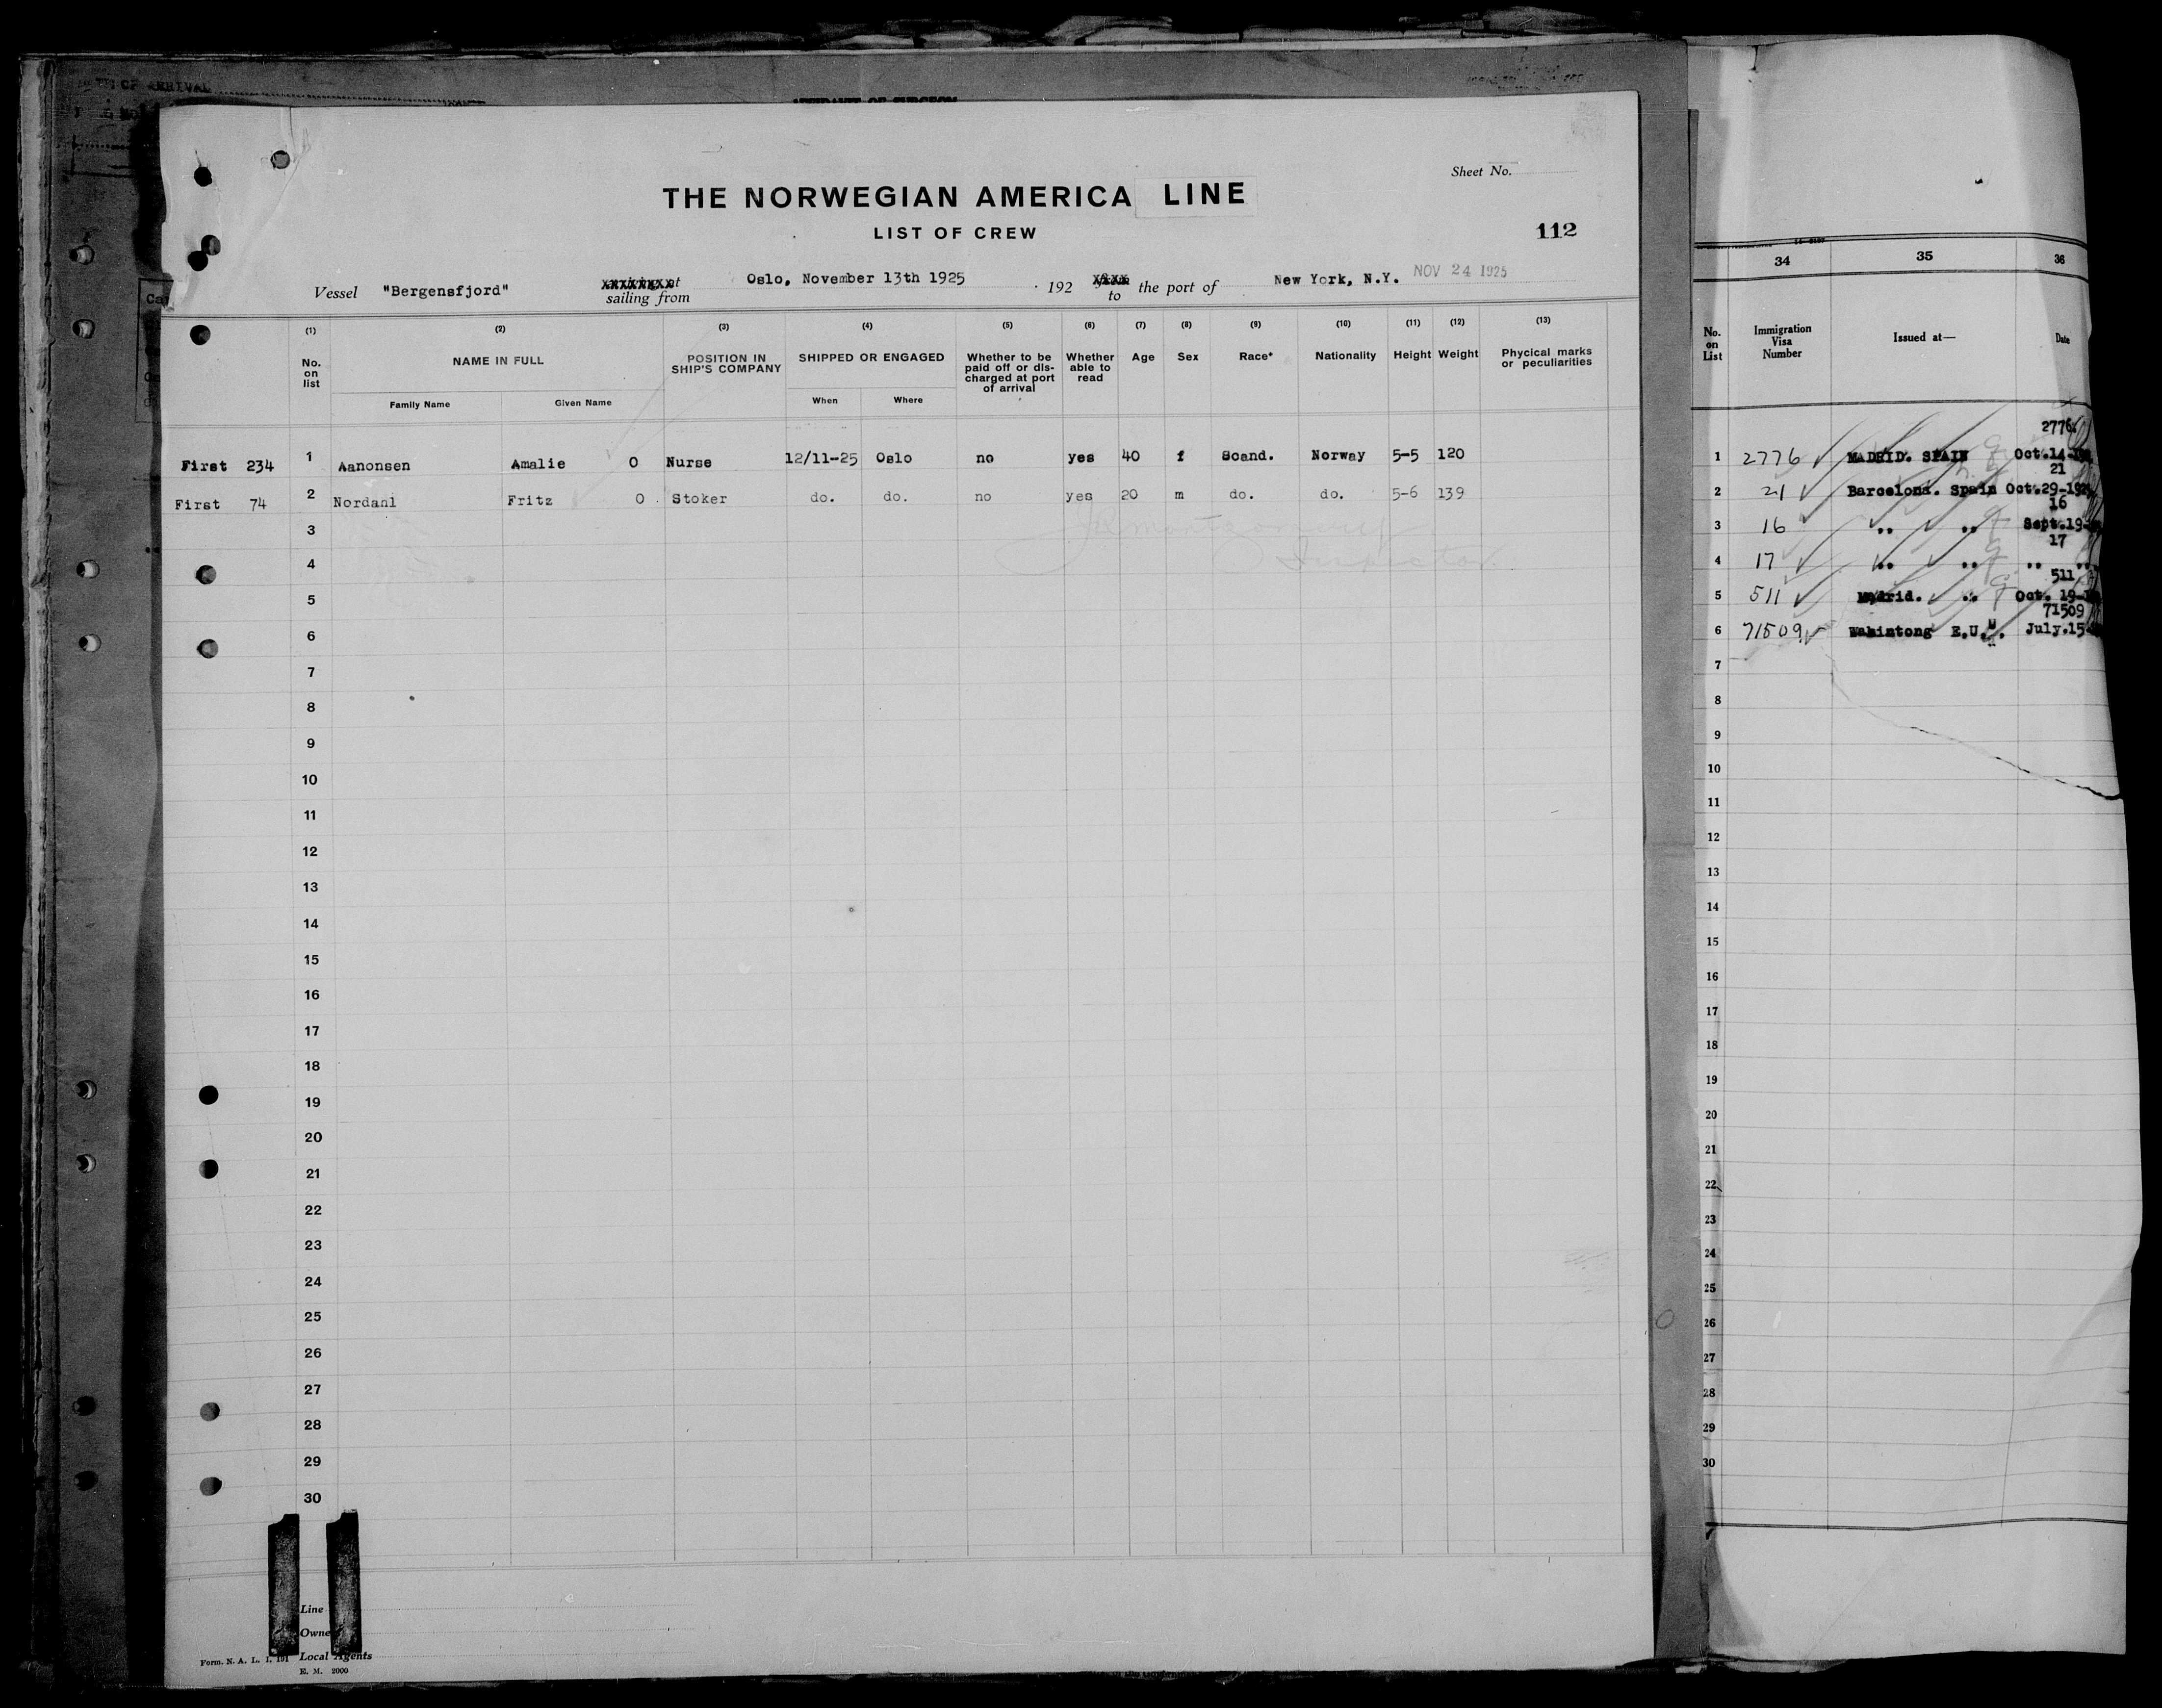 OF ARRIVAL
AFFIDAVIT OF SURGEON
Sheet No.
THE NORWEGIAN AMERICA LINE
LIST OF CREW
112
Vessel "Bergensfjord" sailing from Oslo, November 13th 1925 192 to the port of New York, N.Y. NOV 24 1925
(1) (2) (3) (4) (5) (6) (7) (8) (9) (10) (11) (12) (13)
No. on list NAME IN FULL POSITION IN SHIP'S COMPANY SHIPPED OR ENGAGED Whether to be paid off or discharged at port of arrival Whether able to read Age Sex Race* Nationality Height Weight Phycical marks or peculiarities
Family Name Given Name When Where
First 234 1 Aanonsen Amalie O Nurse 12/11-25 Oslo no yes 40 f Scand. Norway 5-5 120
First 74 2 Nordahl Fritz O Stoker do. do. no yes 20 m do. do. 5-6 139
3
Inspector
4
5
6
7
8
9
10
11
12
13
14
15
16
17
18
19
20
21
22
23
24
25
26
27
28
29
30
Line
Owne
Local Agents
Form. N. A. L. 1, 191
E. M. 2000
34 35 36
No. on List Immigration Visa Number Issued at— Date
2776
1 2776 MADRID. SPAIN Oct.14-
21
2 21 Barcelona. Spain Oct.29-192
16
3 16 .. .. Sept.19-
17
4 17 .. .. .. ..
511
5 511 Madrid. .. Oct. 19-
71509
6 71509 Wahintong E.U. July.15-
7
8
9
10
11
12
13
14
15
16
17
18
19
20
21
22
23
24
25
26
27
28
29
30